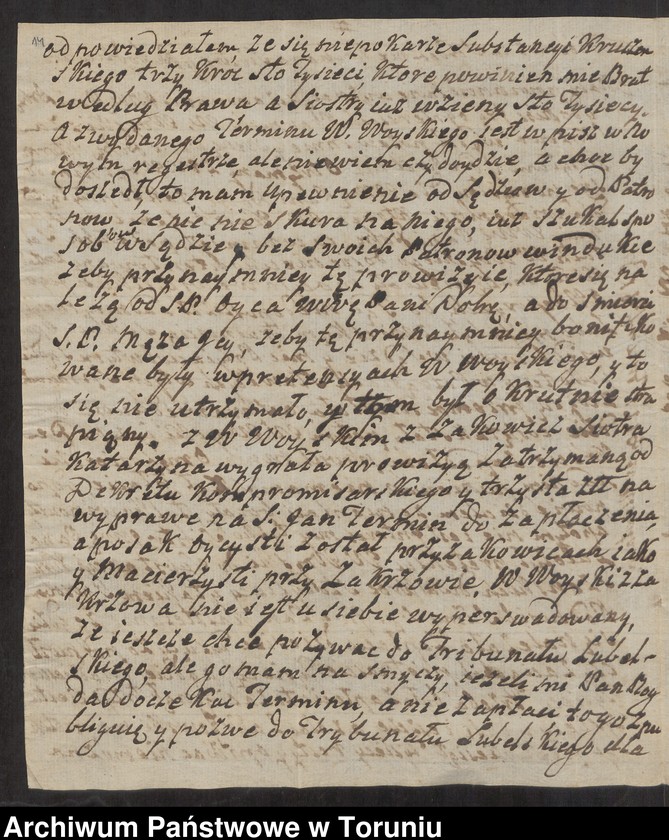 14
odpowiedziałem ze się niepokarze Substancyi Kruszen
skiego trzy Kroc sto Tysieci Ktore powinien mie Brat
według Prawa a Siostry iuz wzieny sto Tysiecy
a zwydanego Terminu W. Woyskiego iest w pisz w No
wym regestrze, aleniewiem czy doydzie, a choc by
doszedł to mam upewnienie od Sędziow y od Patro
now ze nic nie skura na niego, iuz szukał spo
sobow w sądzie bez swoich Patronow windukie
zeby przynaymniey tę prowizyie, Ktore się na
lezą od S.P. Oyca WWę Pani Dobr; a do smierci
S.P. Męza Jey, zeby tę przynaymniey bonifiko
wane były wpretensyach W Woyskiego, y to
się nie utrzymało, y tam był okrutnie
z W Woyskim z Zakowicz Siostra
Katarzyna wygrała prowizyą Zatrzymaną od
Dekretu Kompromisarskiego y trzysta Zll na
wyprawe na S. Jan Termin do Zapłaczenia,
aposak oycysti został przy zakowicach iako
y Macierzysti przy Zakrzowie, W Woyski z Za
Krzowa nie iest u siebie wyperswadowany,
ze ieszcze chce pozywac do Trybunału Lubel-
skiego, ale go mam na smyczy, iezeli mi Pan Bog
da doczekac Terminu, a nie zapłaci to go Zno
bliguię y pozwe do Trybunału Lubelskiego dla
Archiwum Państwowe w Toruniu